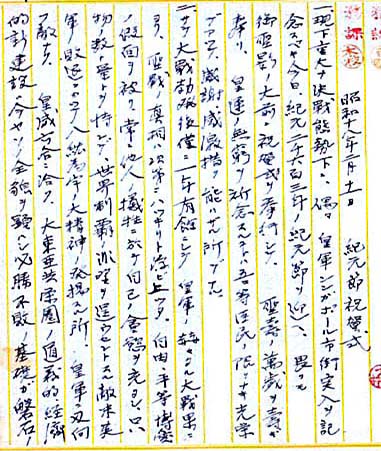 昭和十七年二月十一日　紀元節祝賀式
一、現下重大ナル決戦態勢下、偶々　皇軍シンガポール市街突入ヲ記
念スベキ今日、紀元二千六百二年ノ紀元ノ節ヲ迎ヘ、畏クモ
御聖影ノ大前ニ祝賀式ヲ奉行シテ、聖寿ノ万歳ヲ寿ギ
奉リ、皇運無窮ヲ祈念スルコトハ吾等臣民ノ限リナキ光栄
デアリ、感謝感激措ク能ハザル所デス
二、サテ大戦勃発後僅ニ二ケ月有餘ニシテ皇軍ノ赫々タル大戦果ニ
ヨリ、聖戦ノ真相ハ次第ニハッキリト浮ビ上リ、自由、平等、博愛
ノ仮面ヲ被リ、常ニ他人ノ犠牲ニ於テ自己ノ貪慾ヲ充シ、只、
物ノ数ト量トヲ恃ンデ、世界制覇ノ非望ヲ遂ゲントスル敵米英
軍ノ敗退トナリ、八紘為宇ノ大精神ノ発揚スル所、皇軍ノ刃向
フ敵ナク、皇威六合ニ洽ク、大東亜共栄圏ノ道義的、経済
的新建設ハ今ヤソノ全貌ヲ顕ハシ必勝不敗ノ基礎ガ磐石ノ